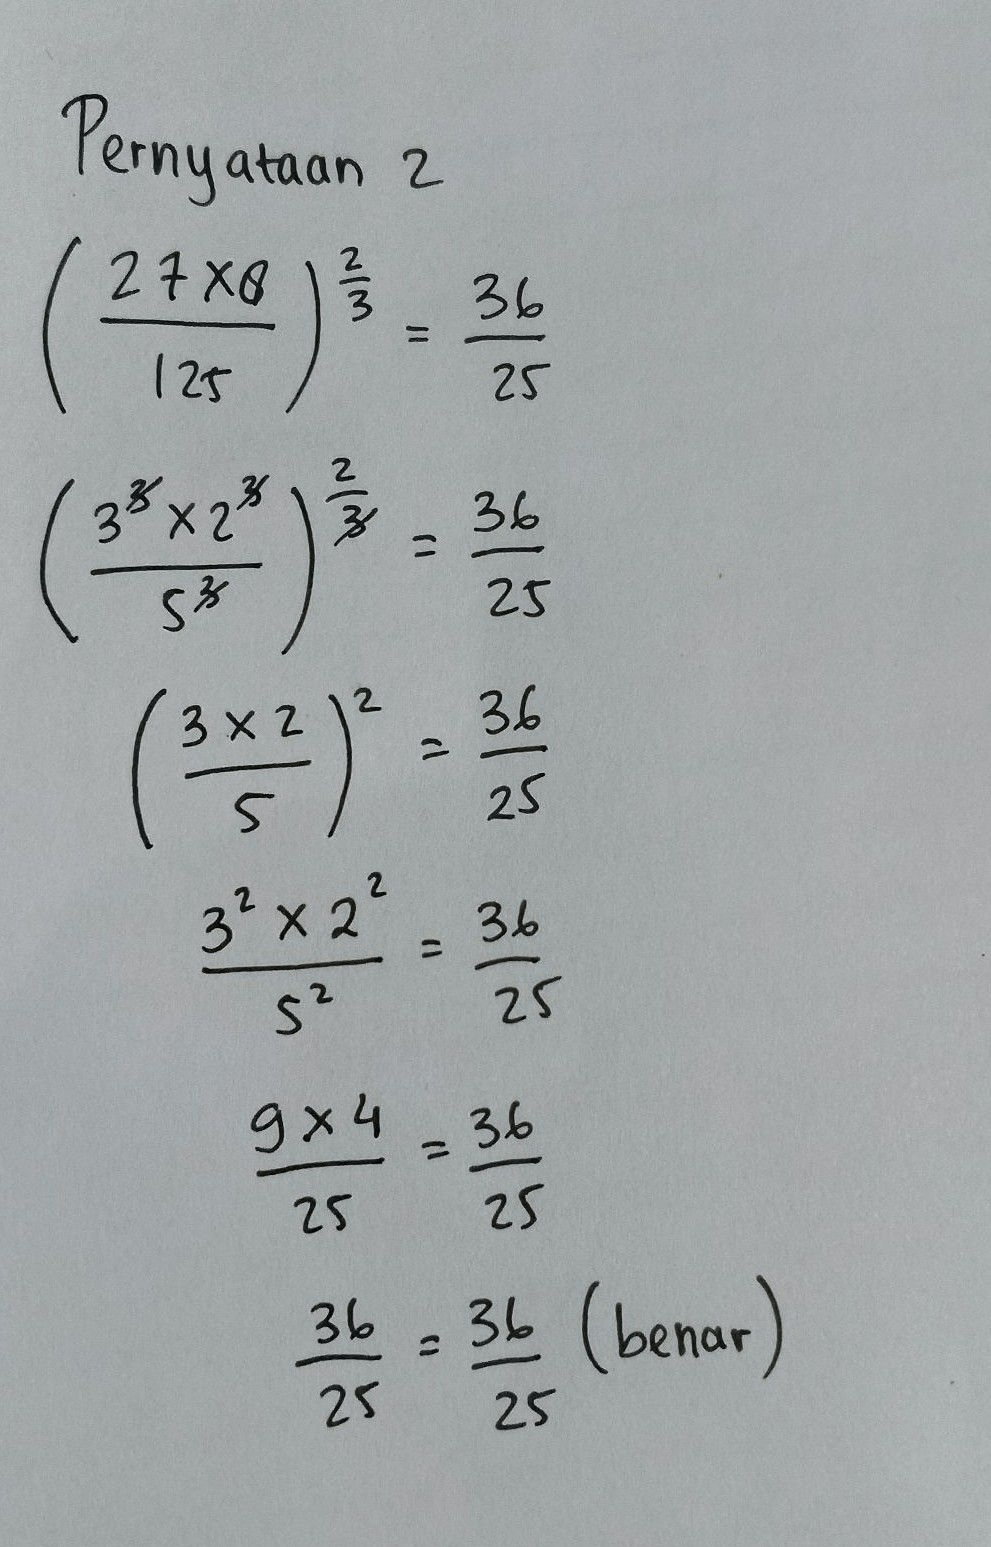 Pernyataan 2
(27 × 8 / 125)^(2/3) = 36/25
(3^3 × 2^3 / 5^3)^(2/3) = 36/25
(3 × 2 / 5)^2 = 36/25
3^2 × 2^2 / 5^2 = 36/25
9 × 4 / 25 = 36/25
36/25 = 36/25 (benar)